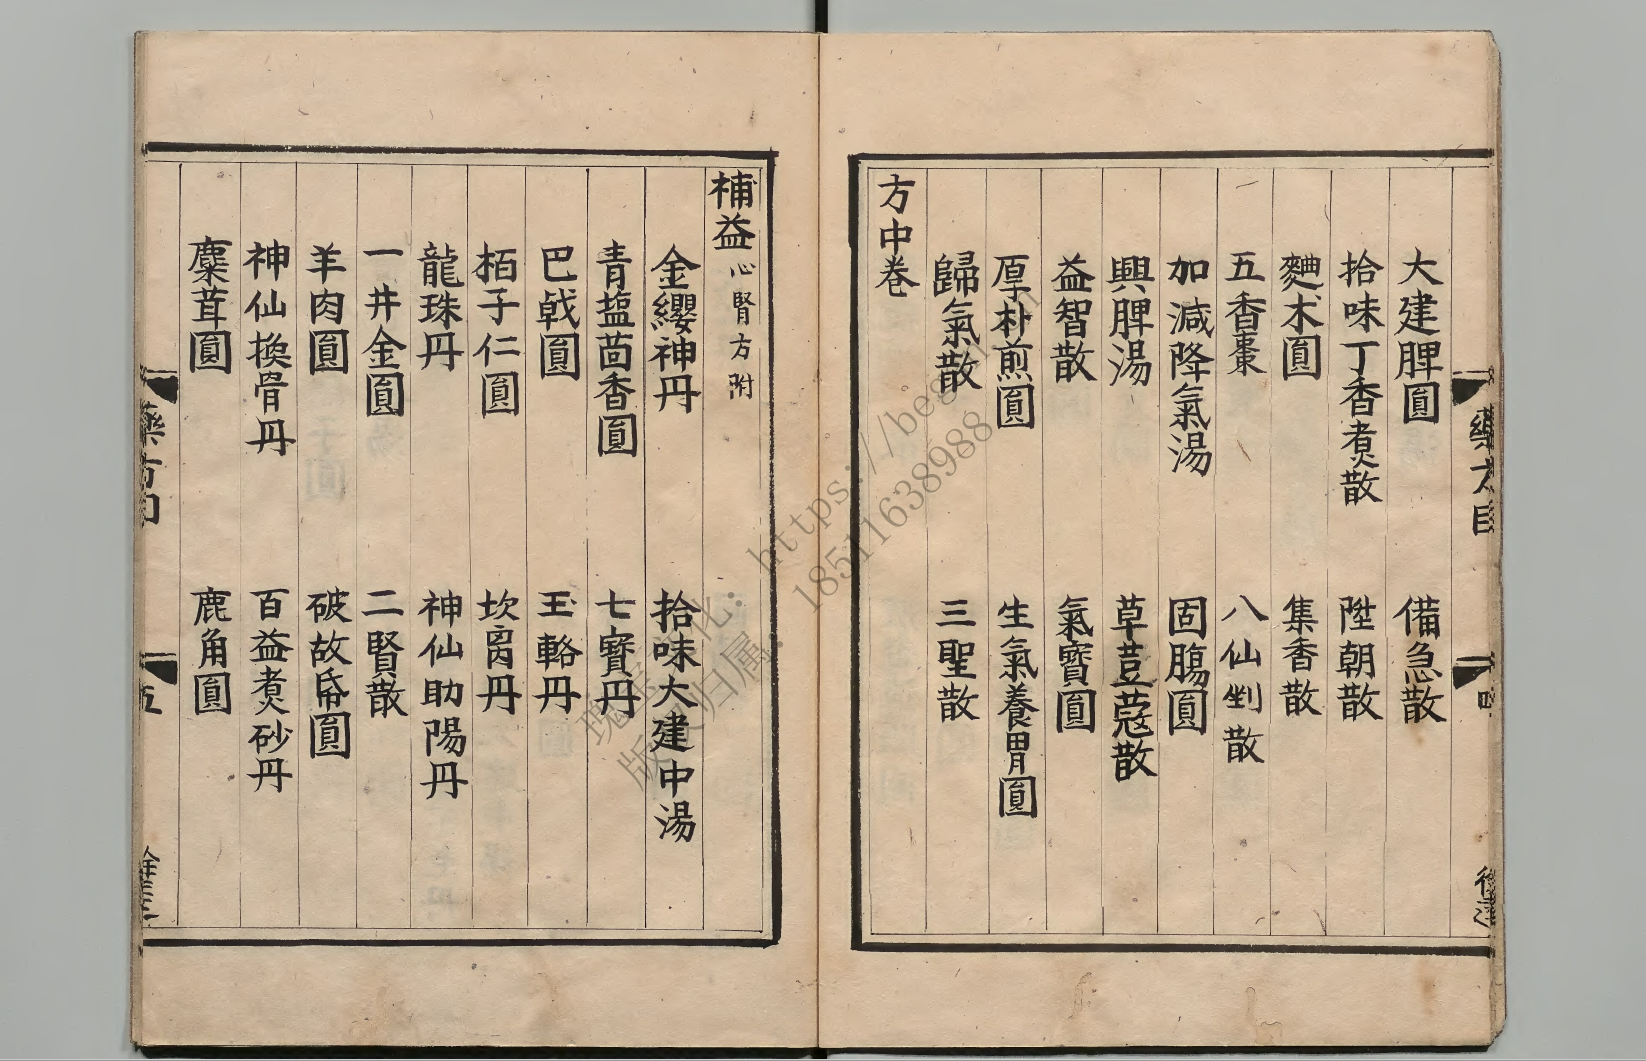 大建脾圓　備急散
拾味丁香煮散　陞朝散
麯朮圓　集香散
五香棗　八仙剉散
加減降氣湯　固腸圓
興脾湯　草荳蔻散
益智散　氣寳圓
厚朴煎圓　生氣養胃圓
歸氣散　三聖散
方中卷
補益心腎方附
金纓神丹　拾味大建中湯
青塩茴香圓　七寳丹
巴戟圓　玉輅丹
栢子仁圓　坎离丹
龍珠丹　神仙助陽丹
一井金圓　二賢散
羊肉圓　破故帋圓
神仙換骨丹　百益煮砂丹
麋茸圓　鹿角圓
藥方目
五
https://
18511638988